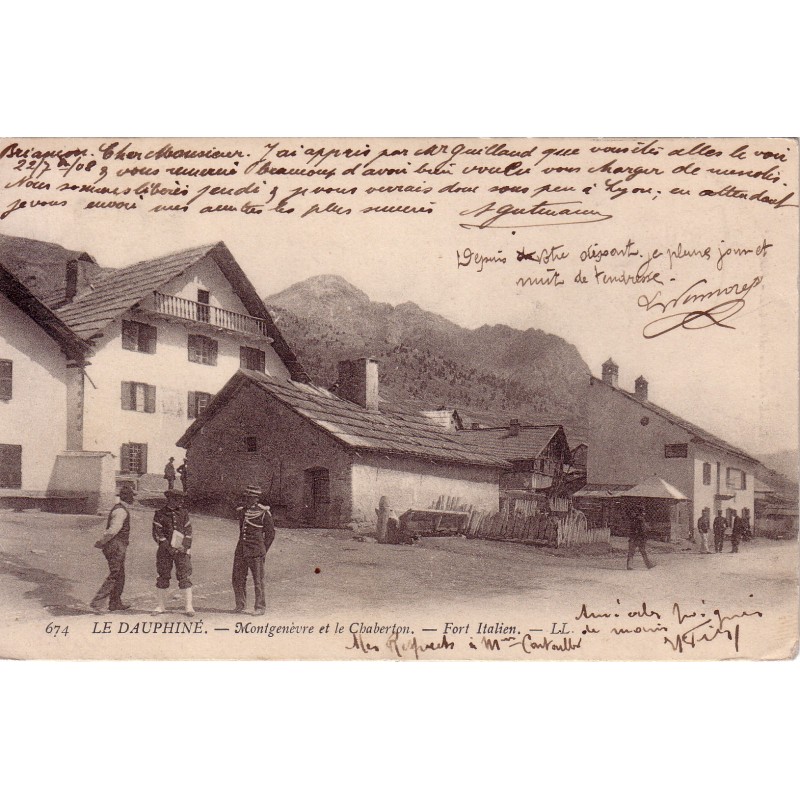 Briançon. Cher Monsieur. J'ai appris par Mr Guilland que vous êtes allés le voir
22/7bre/08 & vous remercie beaucoup d'avoir bien voulu vous charger de
Nous sommes libérés jeudi & je vous verrais donc sous peu à Lyon; en attendant
je vous envoie mes amitiés les plus sincères AGutmann
Depuis votre départ je pleure jour et
nuit de tendresse.
674 LE DAUPHINÉ. — Montgenèvre et le Chaberton. — Fort Italien. — LL.
de mains
Mes Respects à Mme